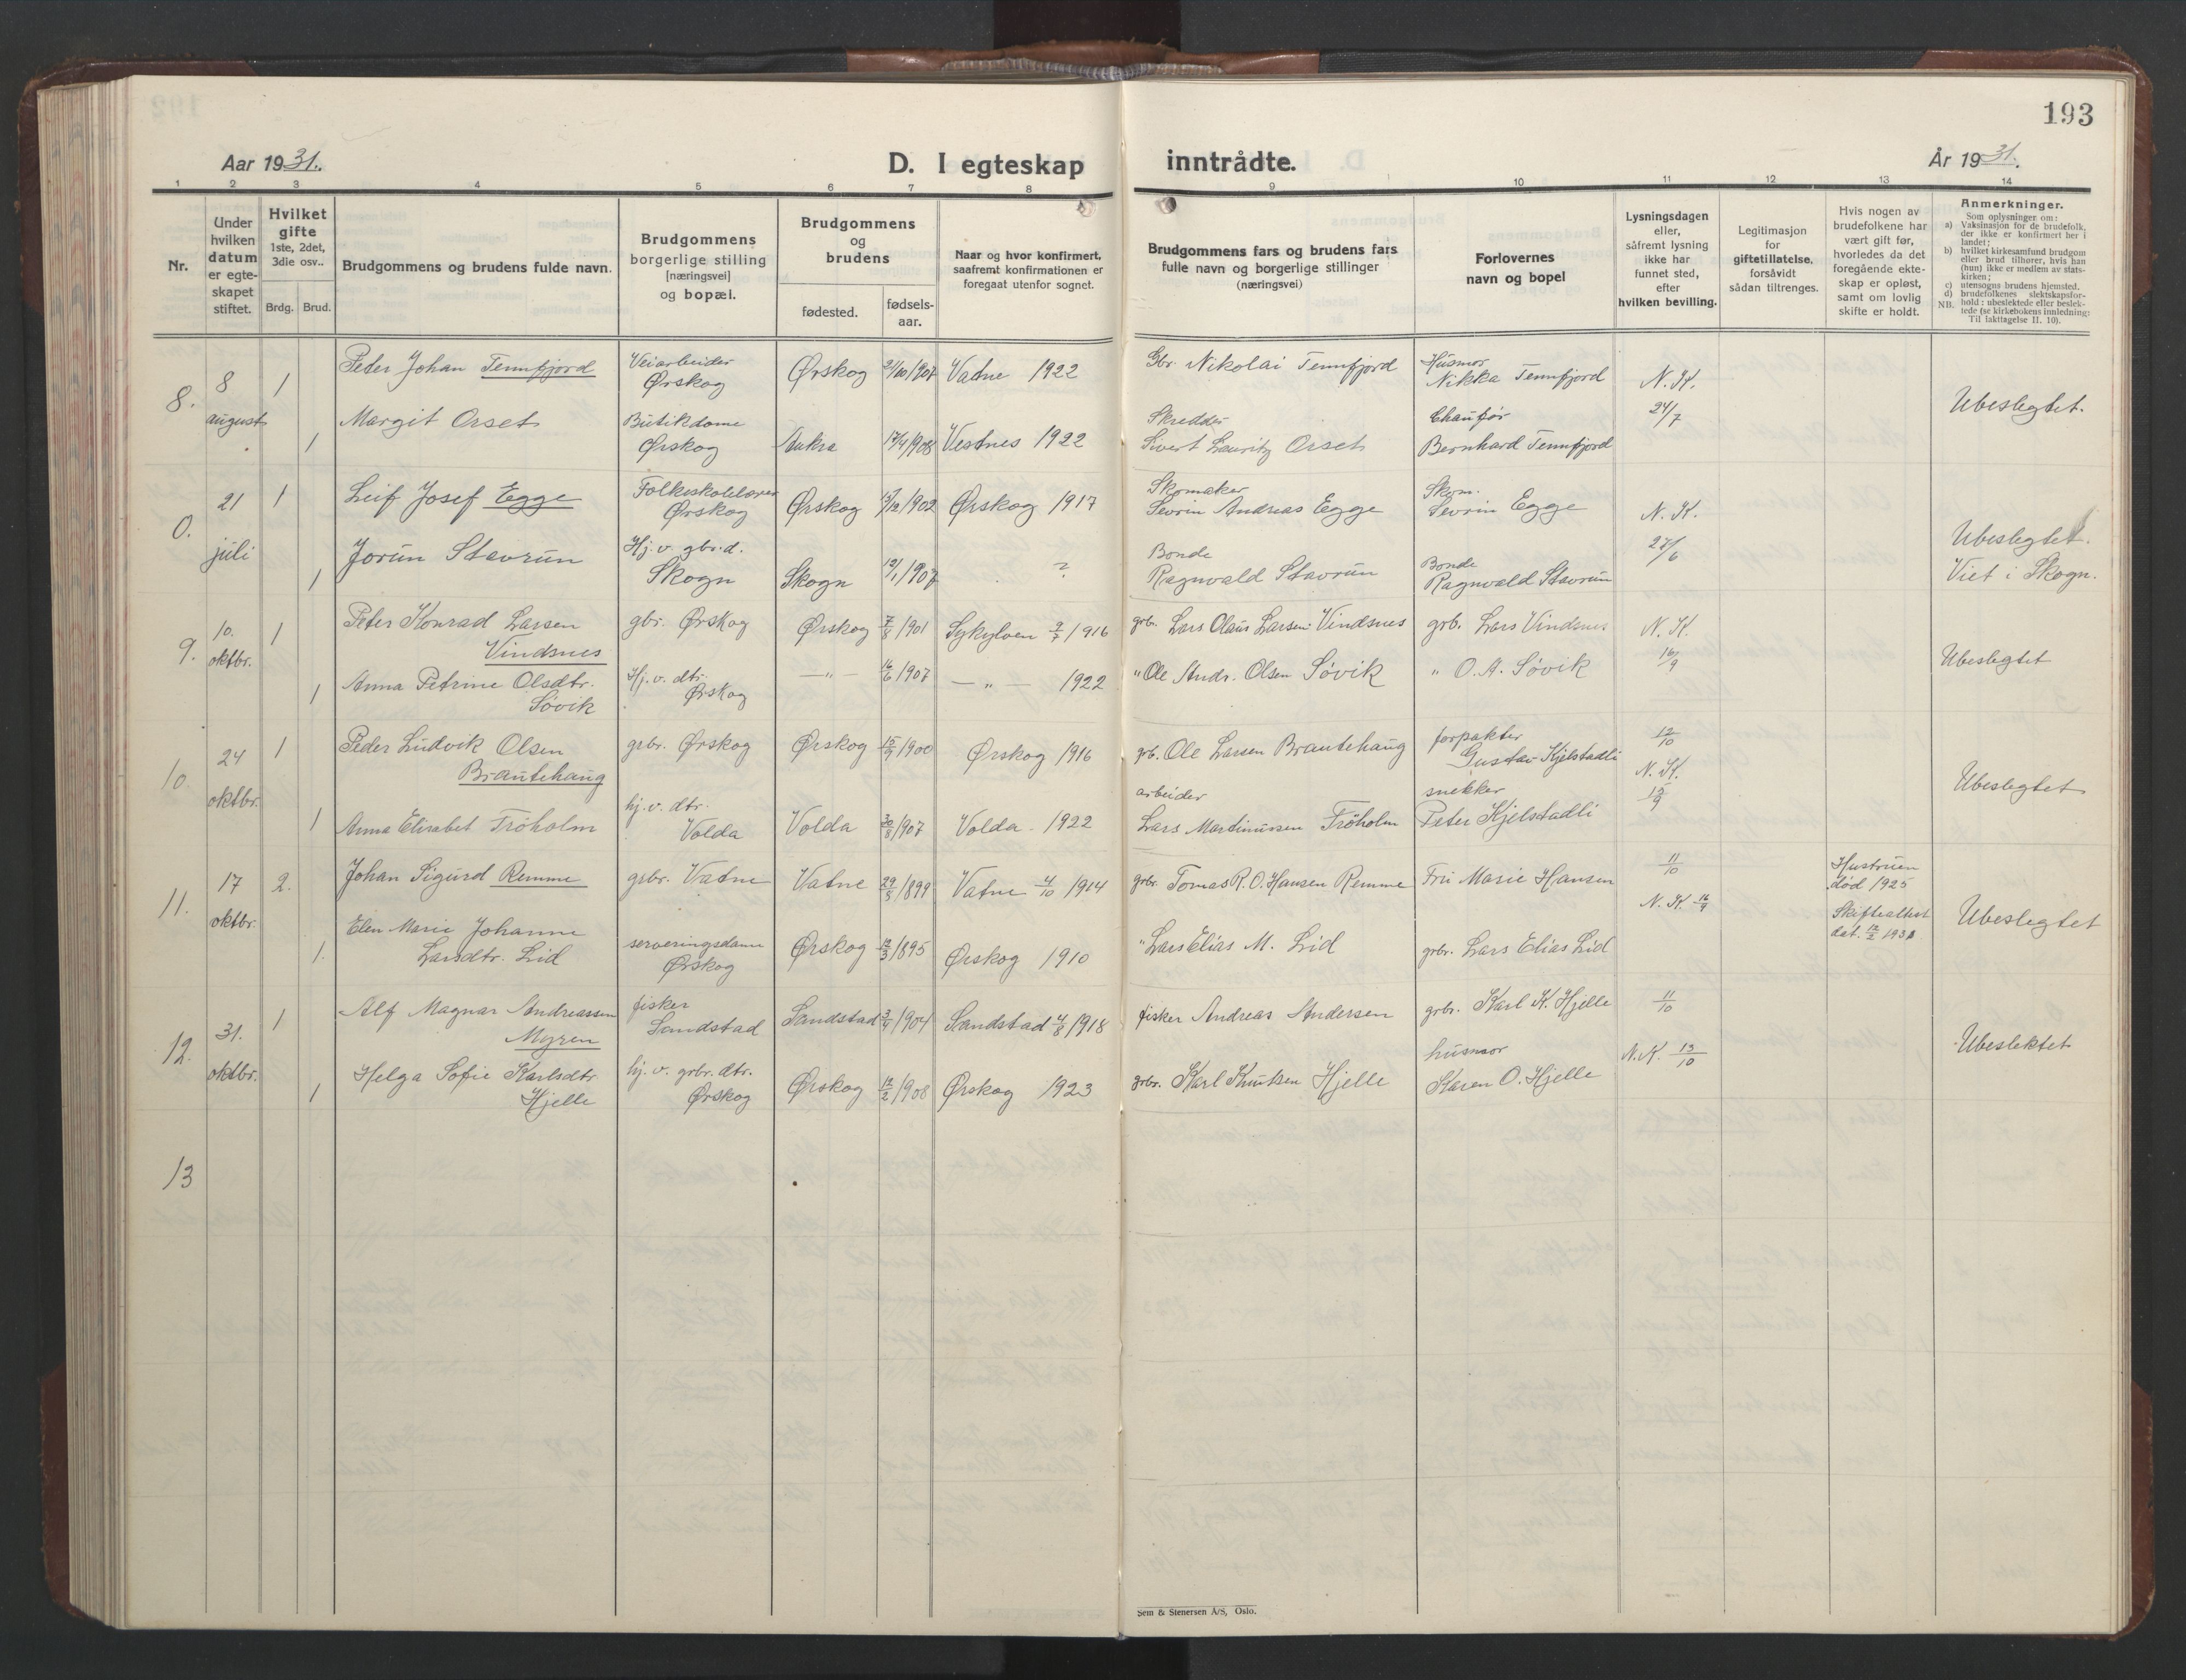 193
Aar 1931.
D. I egteskap inntrådte.
År 1931.
1 2 3 4 5 6 7 8 9 10 11 12 13 14
Nr.
Under hvilken datum er egte-skapet stiftet.
Hvilket gifte 1ste, 2det, 3die osv..
Brdg. Brud.
Brudgommens og brudens fulde navn.
Brudgommens borgerlige stilling [næringsvei] og bopæl.
Brudgommens og brudens
fødested.
fødsels-aar.
Naar og hvor konfirmert, saafremt konfirmationen er foregaat utenfor sognet.
Brudgommens fars og brudens fars fulle navn og borgerlige stillinger (næringsvei)
Forlovernes navn og bopel
Lysningsdagen eller, såfremt lysning ikke har funnet sted, efter hvilken bevilling.
Legitimasjon for giftetillatelse, forsåvidt sådan tiltrenges.
Hvis nogen av brudefolkene har vært gift før, hvorledes da det foregående ekte-skap er opløst, samt om lovlig skifte er holdt.
Anmerkninger.
Som oplysninger om:
a) Vaksinasjon for de brudefolk, der ikke er konfirmert her i landet;
b) hvilket kirkesamfund brudgom eller brud tilhører, hvis han (hun) ikke er medlem av stats-kirken;
c) utensogns brudens hjemsted.
d) brudefolkenes slektskapsfor-hold: ubeslektede eller beslek-tede (se kirkebokens innledning: Til iakttagelse II. 10).
NB.
8. 8 august 1 Peter Johan Tennfjord Veiarbeider Ørskog Ørskog 21/10/1907 Vatne 1922 Gbr. Nikolai Tennfjord Husmor Nikka Tennfjord N. K. 24/7 Ubeslegtet.
1 Margit Orset Butikdame Ørskog Aukra 17/4/1908 Vestnes 1922 Skredder Sivert Lauritz Orset Chaufør Bernhard Tennfjord
0. 21 juli 1 Leif Josef Egge Folkeskolelærer Ørskog Ørskog /12/1902 Ørskog 1917 Skomaker Sevrin Andreas Egge Skom. Sevrin Egge N. K. 27/6 Ubeslegtet. Viet i Skogn.
1 Jorun Stavrun Hj. v. gbr. d. Skogn Skogn 12/1/1907 ? Bonde Ragnvald Stavrun Bonde Ragnvald Stavrun
9. 10. oktbr. 1 Peter Konrad Larsen Vindsnes gbr. Ørskog Ørskog 7/8/1901 Sykylven 2/7 1916 grb. Lars Olaus Larsen Vindsnes grb. Lars Vindsnes N. K. 16/9 Ubeslegtet
1 Anna Petrine Olsdtr. Søvik Hj. v. dtr. Ørskog — " — 16/6/1907 — " — 1922 " Ole Andr. Olsen Søvik " O. A. Søvik
10. 24 oktbr. 1 Peder Ludvik Olsen Brautehaug grbr. Ørskog Ørskog 15/9/1900 Ørskog 1916 grb. Ole Larsen Brautehaug forpakter Gustav Kjelstadli 12/10 N. K. 15/9 Ubeslegtet
1 Anna Elisabet Trøholm hj. v. dtr. Volda Volda 30/8/1907 Volda 1922 arbeider Lars Martinussen Trøholm snekker Peter Kjelstadli
11. 17 oktbr. 2. Johan Sigurd Remme grbr. Vatne Vatne 29/5/1899 Vatne 4/10 1914 grbr. Tomas R. O. Hansen Remme Fru Marie Hansen 11/10 N. K. 16/9 Hustruen død 1925 Skifteattest dat. 12/2 1931 Ubeslegtet
1. Elen Marie Johanne Larsdtr. Lid serveringsdame Ørskog Ørskog 12/3/1895 Ørskog 1910 " Lars Elias M. Lid grbr. Lars Elias Lid
12. 31. oktbr. 1 Alf Magnar Andreassen Myren fisker Sandstad Sandstad 3/4/1904 Sandstad 4/8 1918 fisker Andreas Andersen grbr. Karl K. Hjelle 11/10 N. K. 13/10 Ubeslektet
1 Helga Sofie Karlsdtr Hjelle hj. v. grbr. dtr. Ørskog Ørskog 12/2/1908 Ørskog 1923 grbr. Karl Knutsen Hjelle husmor Karen O. Hjelle
13
Sem & Stenersen A/S, Oslo.